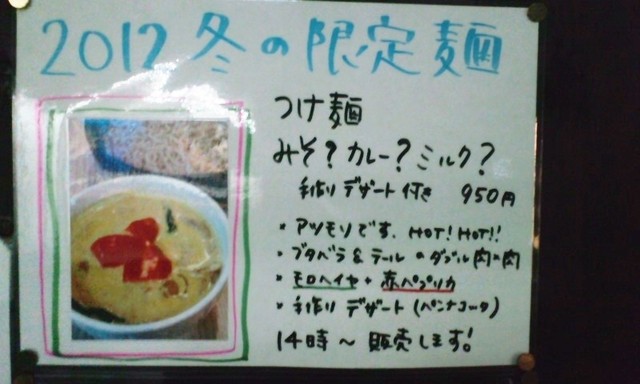 2012 冬の限定麺
つけ麺
みそ?カレー?ミルク?
手作りデザート付き 950円
・アツモリです. HOT! HOT!!
・ブタバラ&テールのダブル肉×肉
・モロヘイヤ+赤パプリカ
・手作りデザート(パンナコッタ)
14時〜販売します!